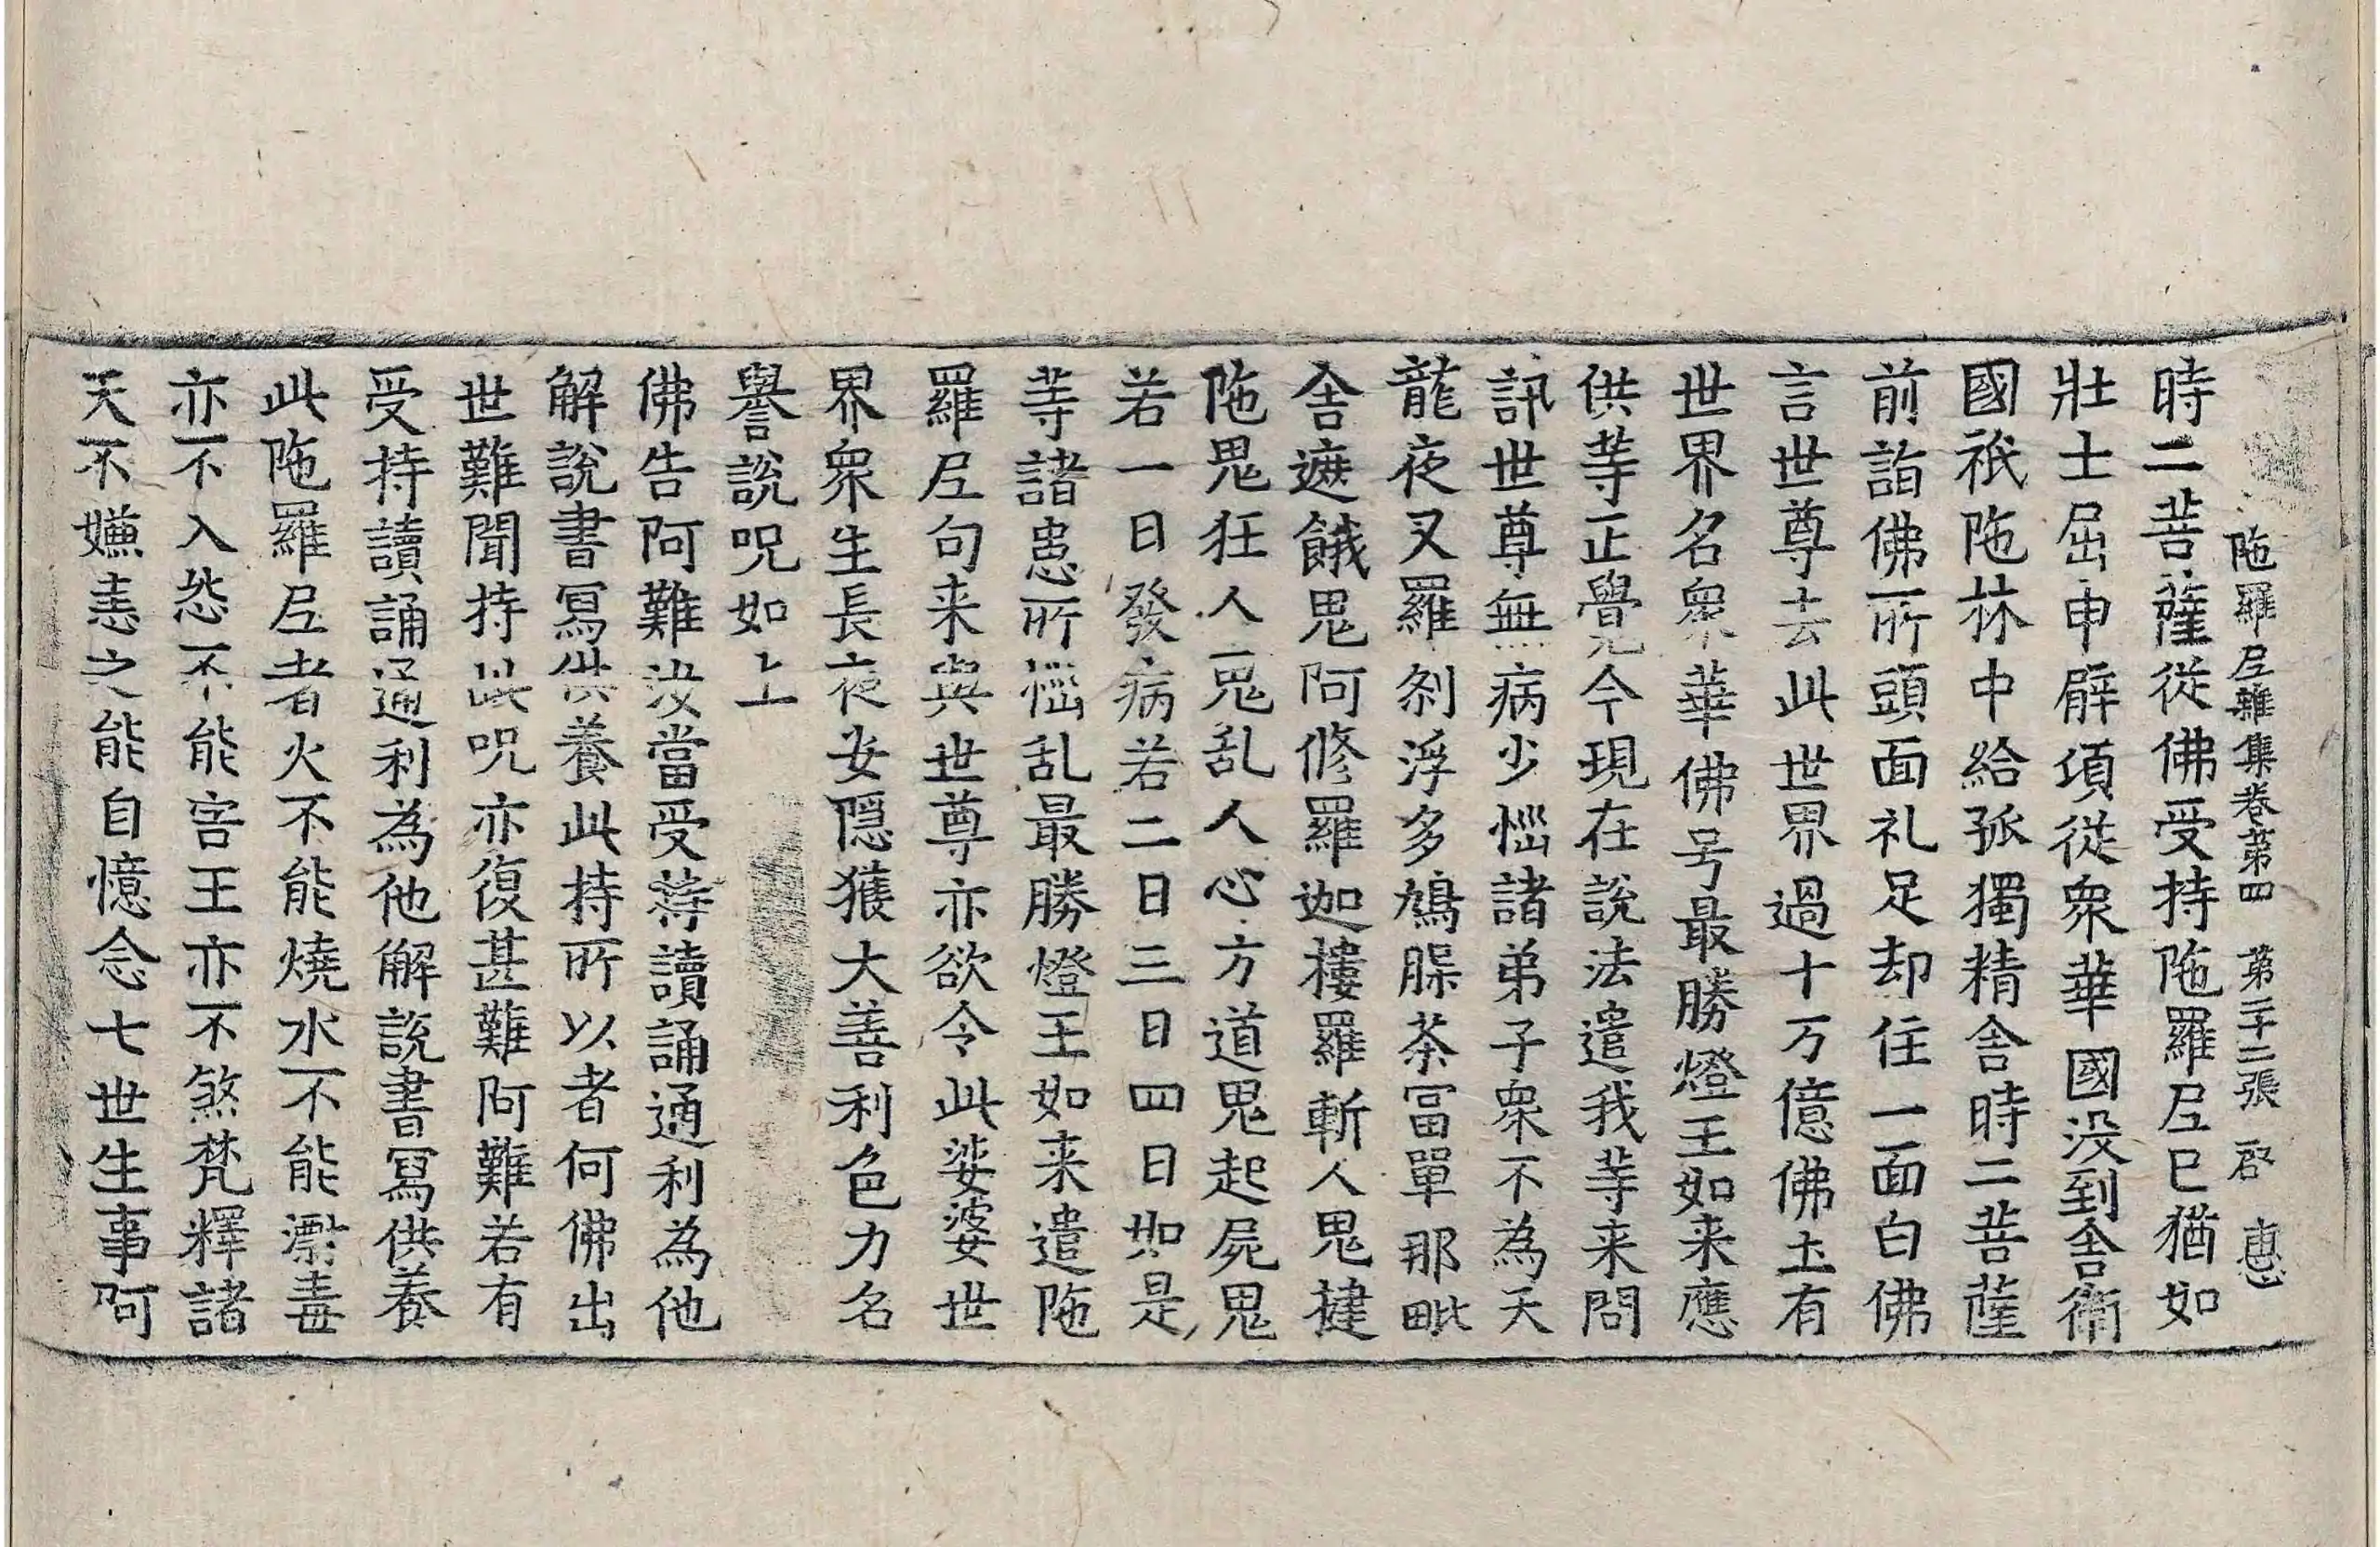 陁羅尼雜集卷第四 第二十二張 启 惪
時二菩薩從佛受持陁羅尼已猶如
壯士屈申臂項從衆華國没到舍衛
國祇陁林中給孤獨精舍時二菩薩
前詣佛所頭面礼足却住一面白佛
言世尊去此世界過十万億佛土有
世界名衆華佛号最勝燈王如来應
供等正覺今現在說法遣我等来問
訊世尊無病少惱諸弟子衆不為天
龍夜叉羅刹浮多鳩腺茶冨單那毗
舍遮餓鬼阿修羅迦樓羅斬人鬼揵
陁鬼狂人鬼乱人心方道鬼起屍鬼
若一日發病若二日三日四日如是
等諸患所惱乱最勝燈王如来遣陁
羅尼句来與世尊亦欲令此娑婆世
界衆生長夜安隠獲大善利色力名
譽說呪如上
佛告阿難汝當受持讀誦通利為他
解說書寫供養此持所以者何佛出
世難聞持此呪亦復甚難阿難若有
受持讀誦通利為他解說書寫供養
此陁羅尼者火不能燒水不能漂毒
亦不入怨不能害王亦不煞梵釋諸
天不嫌恚之能自憶念七世生事阿